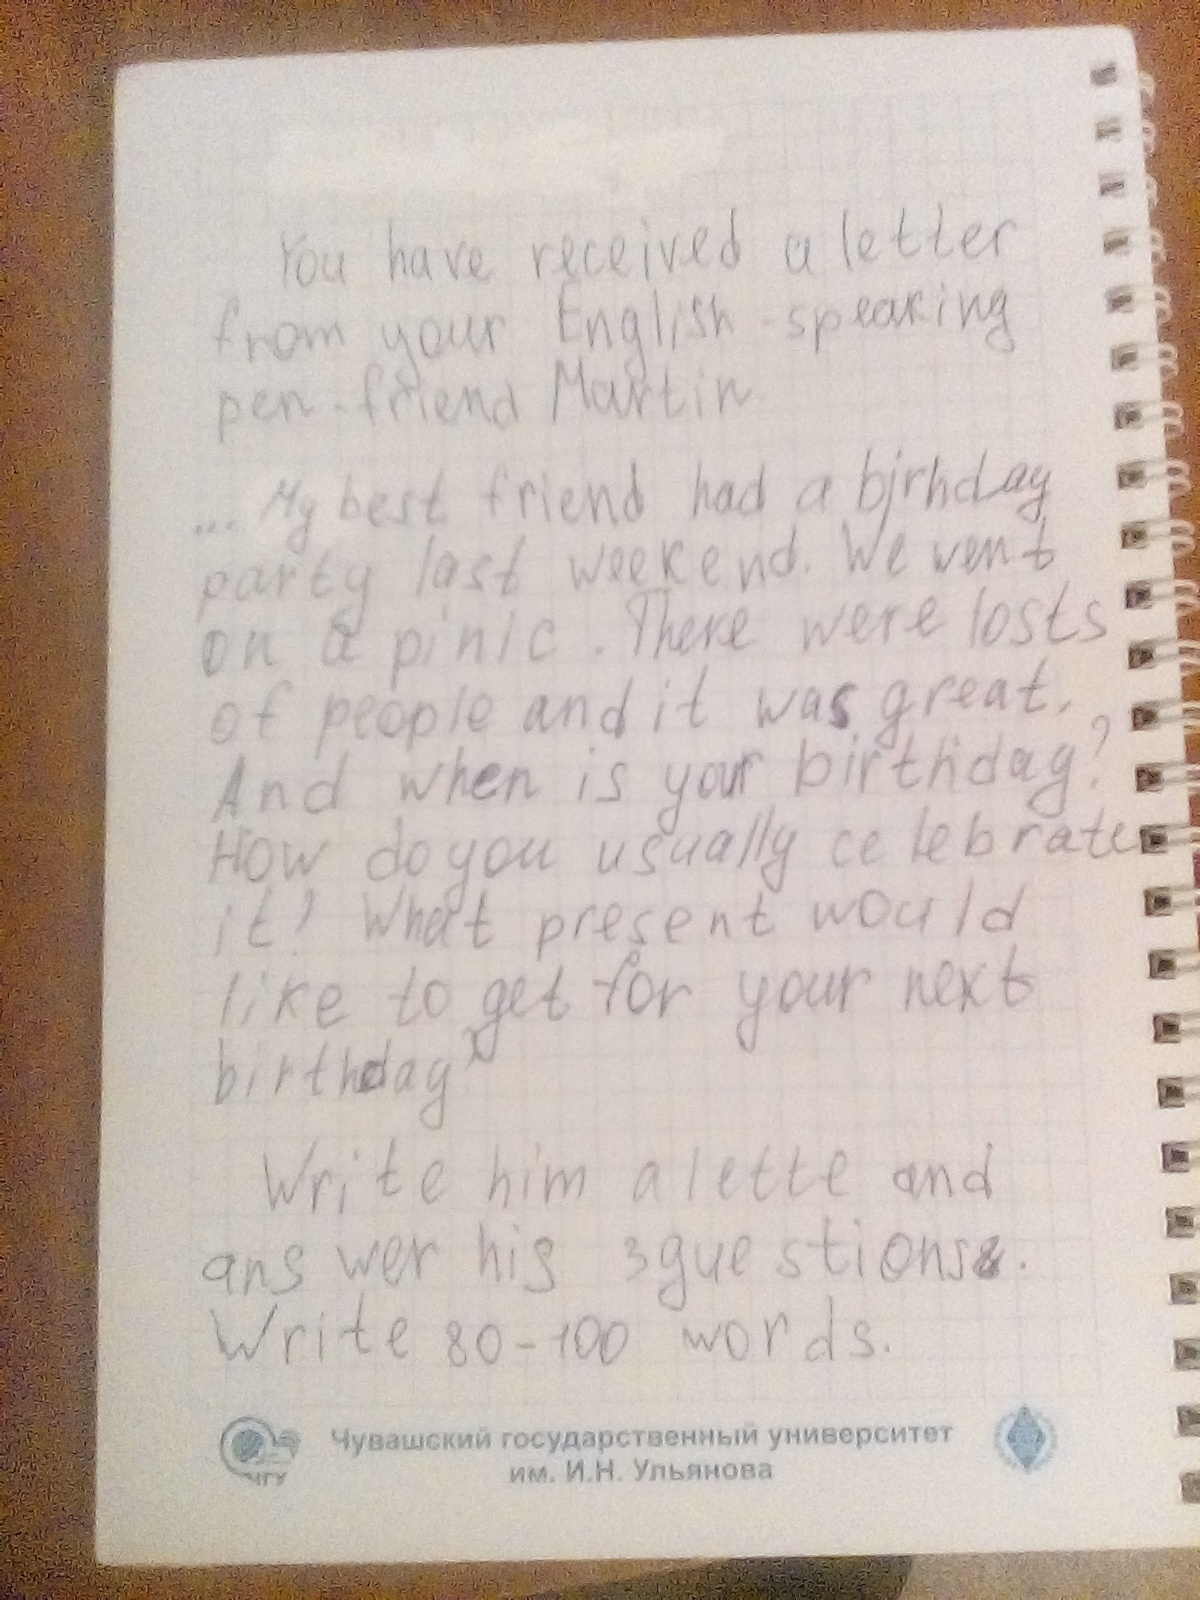 You have received a letter
from your English-speaking
pen-friend Martin
... My best friend had a birhday
party last weekend. We went
on a pinic. There were losts
of people and it was great.
And when is your birthday?
How do you usually celebrate
it? What present would
like to get for your next
birthday?
Write him a lette and
answer his 3 questions.
Write 80-100 words.
Чувашский государственный университет
им. И.Н. Ульянова
ЧГУ